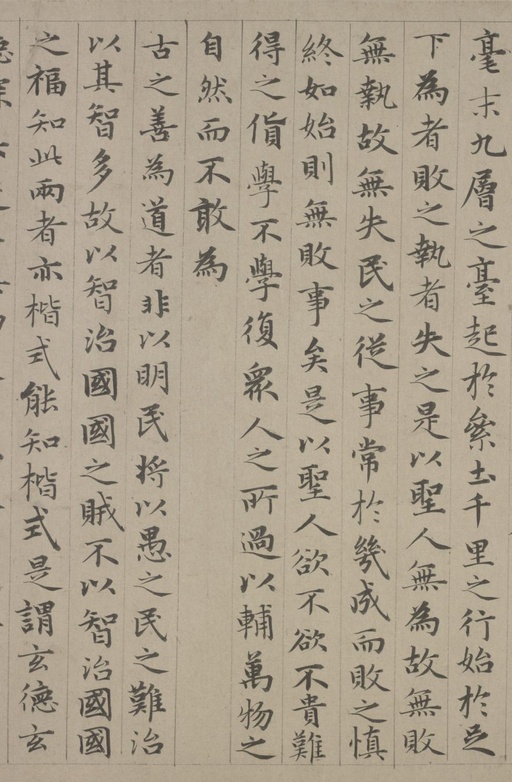 毫末九層之臺起於絫土千里之行始於足
下為者敗之執者失之是以聖人無為故無敗
無執故無失民之從事常於幾成而敗之慎
終如始則無敗事矣是以聖人欲不欲不貴難
得之貨學不學復眾人之所過以輔萬物之
自然而不敢為
古之善為道者非以明民將以愚之民之難治
以其智多故以智治國國之賊不以智治國國
之福知此兩者亦楷式能知楷式是謂玄德玄